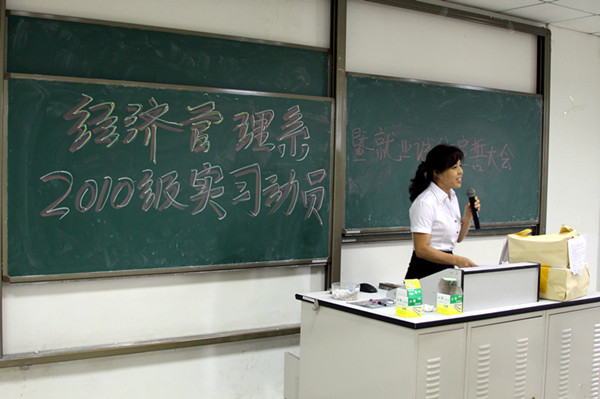 经济管理系
2010级实习动员
暨就业诚信宣誓大会